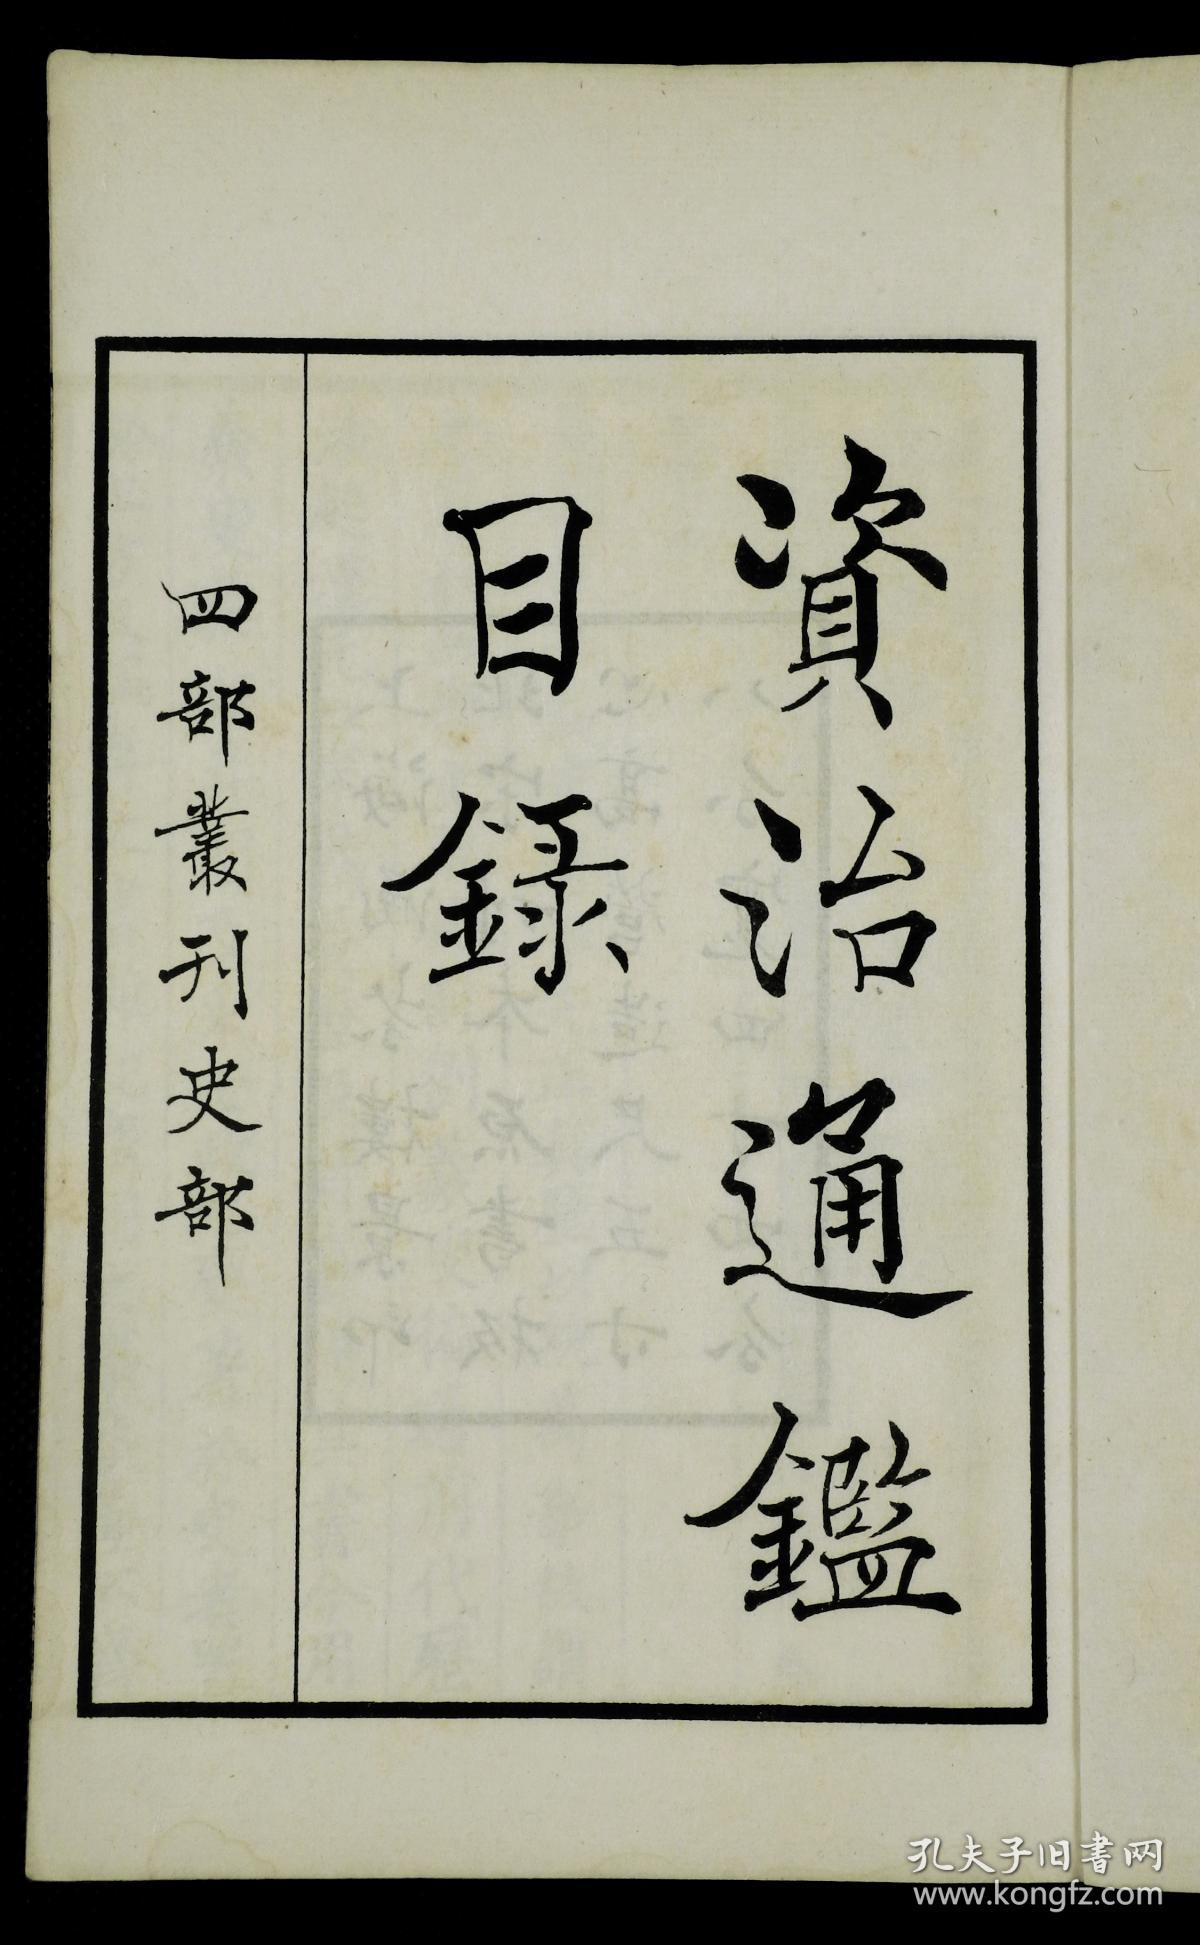 資治通鑑
目録
四部叢刊史部
孔夫子旧書网
www.kongfz.com